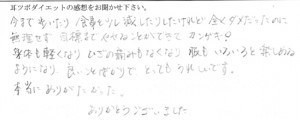 耳ツボダイエットの感想をお聞かせ下さい。
今まで歩いたり食事を少し減したりしたけれど全くダメだったのに
無理せず目標までやせることができてカンゲキ!
身体も軽くなりひざの痛みもなくなり服もいろいろと楽しめる
ようになり良いことばかりでとってもうれしいです。
本当にありがたかった。
ありがとうございました